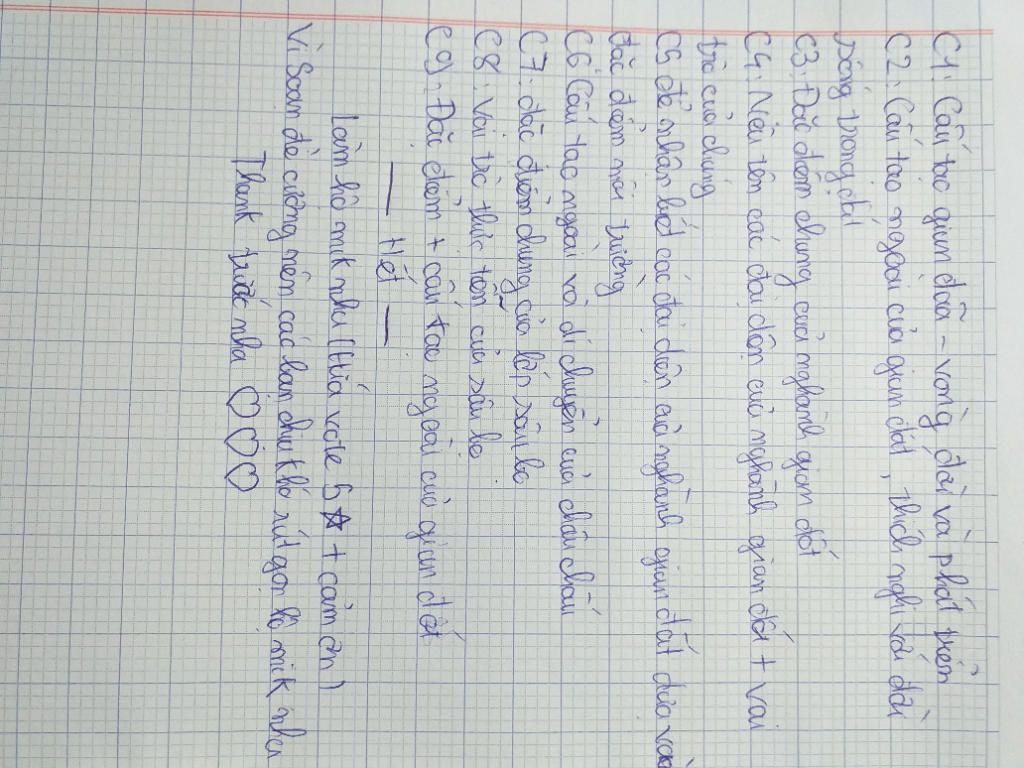 C1: Cấu tạo giun đũa - vòng đời và phát triển
C2: Cấu tạo ngoài của giun đất, thích nghi với đời
sống trong đất
C3: Đặc điểm chung của nghành giun đốt
C4: Nêu tên các đại diện của nghành giun đốt + vai
trò của chúng
C5 để nhận biết các đại diện của nghành giun đất dựa vào
đặc điểm môi trường
C6 Cấu tạo ngoài và di chuyển của châu chấu
C7: đặc điểm chung của lớp sâu bọ
C8: Vai trò thực tiễn của sâu bọ
C9: Đặc điểm + cấu tạo ngoài của giun đốt
— Hết —
Làm hộ mik nha (Hứa vote 5 ☆ + cảm ơn)
Vì soạn đề cương nên các bạn chịu khó rút gọn hộ mik nhen
Thank trước nha ♡♡♡